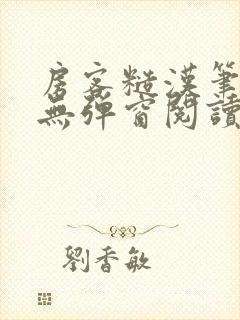 房客糙漢筆
無彈窗閱讀
劉香敏